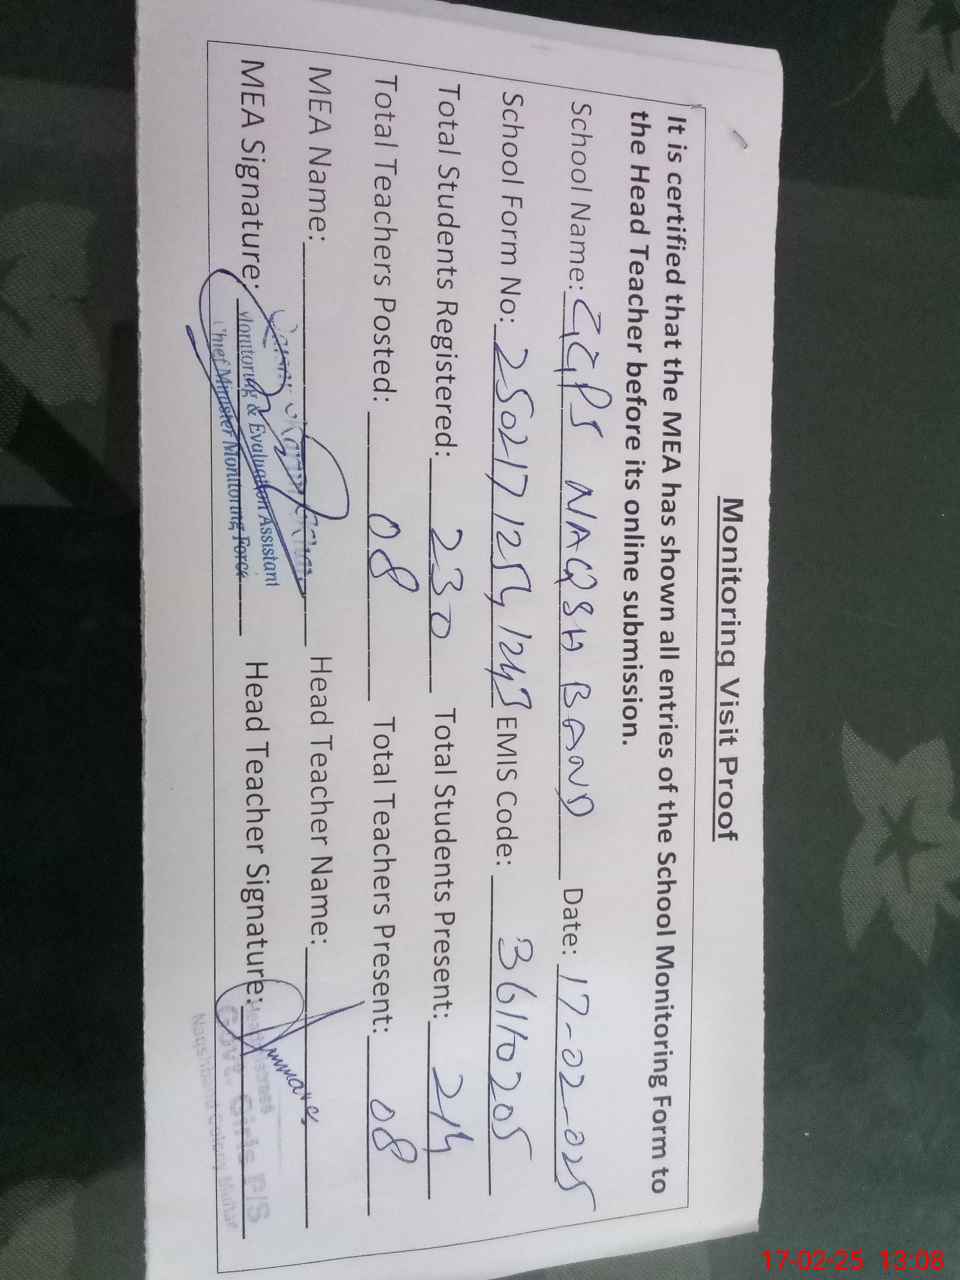 Monitoring Visit Proof
It is certified that the MEA has shown all entries of the School Monitoring Form to
the Head Teacher before its online submission.
School Name: GGPS NAQSH BAND Date: 17-02-025
School Form No: EMIS Code: 36110205
Total Students Registered: 230 Total Students Present: 214
Total Teachers Posted: 08 Total Teachers Present: 08
MEA Name: Head Teacher Name:
MEA Signature: Head Teacher Signature:
Monitoring & Evaluation Assistant
Chief Minister Monitoring Force
Headmistress
Govt. Girls P/S
Naqshband Colony Multan
17-02-25 13:08